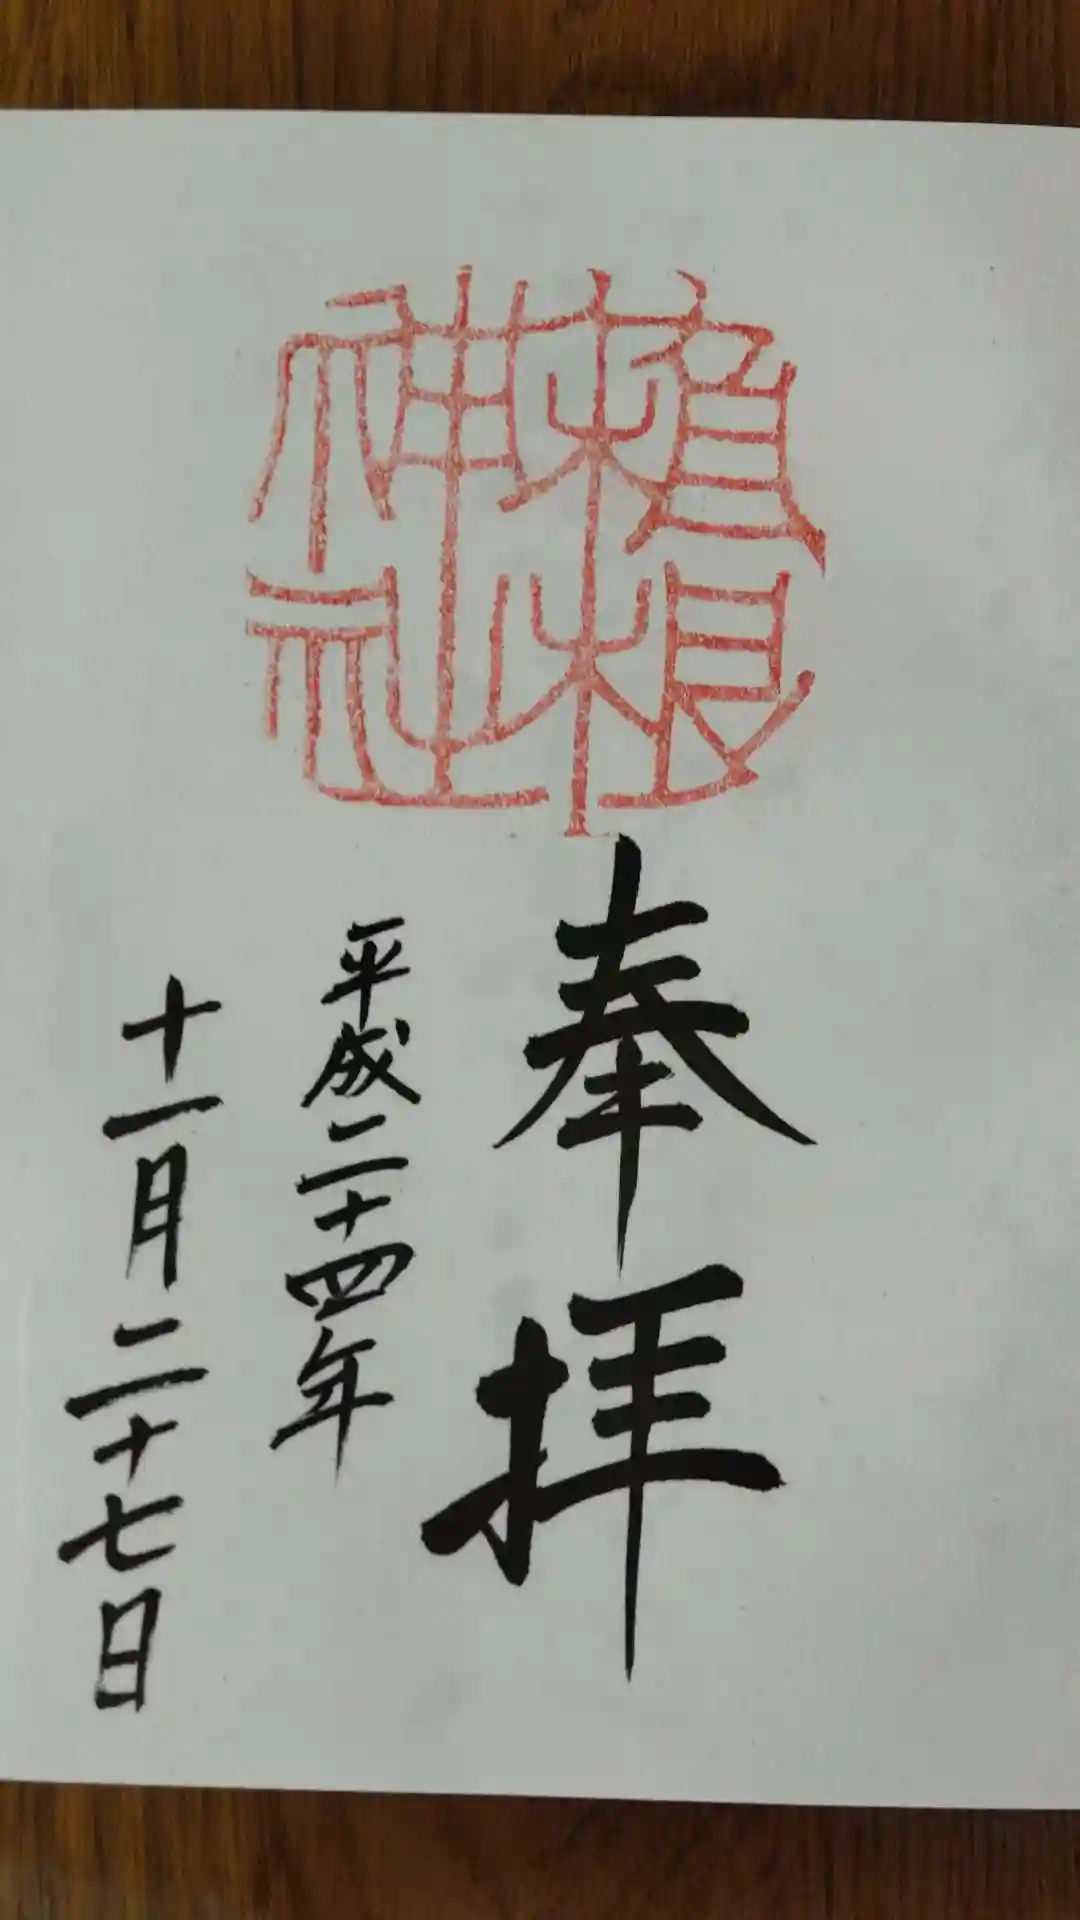 根
神社
奉拝
平成二十四年
十一月二十七日